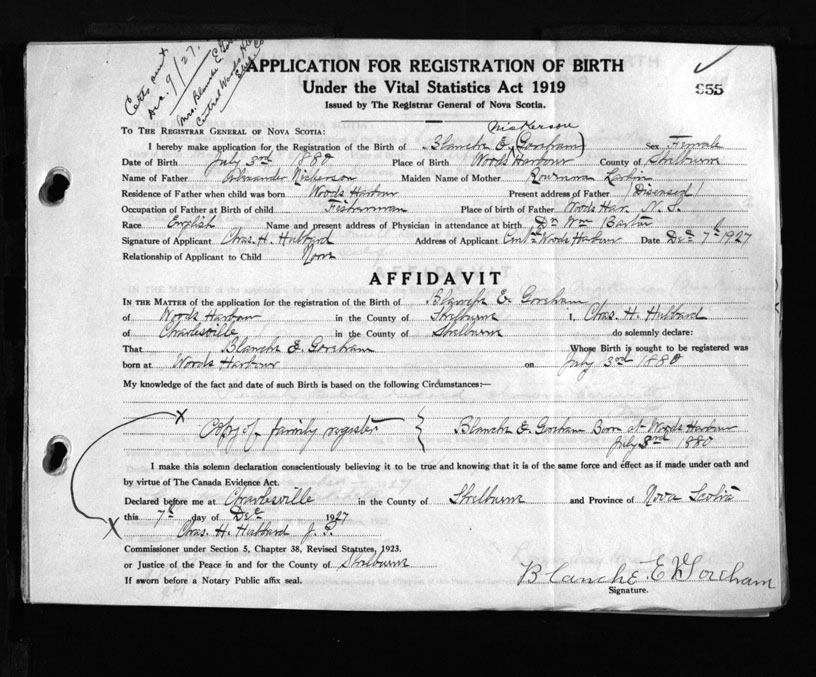 Mrs. Blanche E
Central Woods
Dec. 9/27.
APPLICATION FOR REGISTRATION OF BIRTH
955
Under the Vital Statistics Act 1919
Issued by The Registrar General of Nova Scotia.
Nickerson
TO THE REGISTRAR GENERAL OF NOVA SCOTIA:
I hereby make application for the Registration of the Birth of Blanche E. (Goreham) Sex Female
Date of Birth July 3rd, 1880 Place of Birth Woods Harbour County of Shelburne
Name of Father Alexander Nickerson Maiden Name of Mother Larkin
Residence of Father when child was born Woods Harbour Present address of Father (Diseased)
Occupation of Father at Birth of child Fisherman Place of birth of Father Woods Har. N. S.
Race English Name and present address of Physician in attendance at birth Dr Wm
Signature of Applicant Chas. H. Hubbard Address of Applicant Woods Harbour Date Dec 7th 1927
Relationship of Applicant to Child None
AFFIDAVIT
IN THE MATTER of the application for the registration of the Birth of Blanche E. Goreham
of Woods Harbour in the County of Shelburne I, Chas. H. Hubbard
of Charlesville in the County of Shelburne do solemnly declare:
That Blanche E. Goreham Whose Birth is sought to be registered was
born at Woods Harbour on July 3rd 1880
My knowledge of the fact and date of such Birth is based on the following Circumstances:—
x Copy of family register { Blanche E. Goreham Born at Woods Harbour
July 3rd 1880
I make this solemn declaration conscientiously believing it to be true and knowing that it is of the same force and effect as if made under oath and
by virtue of The Canada Evidence Act.
Declared before me at Charlesville in the County of Shelburne and Province of Nova Scotia
this 7th day of Dec 1927
x Chas. H. Hubbard J. P.
Commissioner under Section 5, Chapter 38, Revised Statutes, 1923.
or Justice of the Peace in and for the County of Shelburne
If sworn before a Notary Public affix seal.
Blanche E Goreham
Signature.